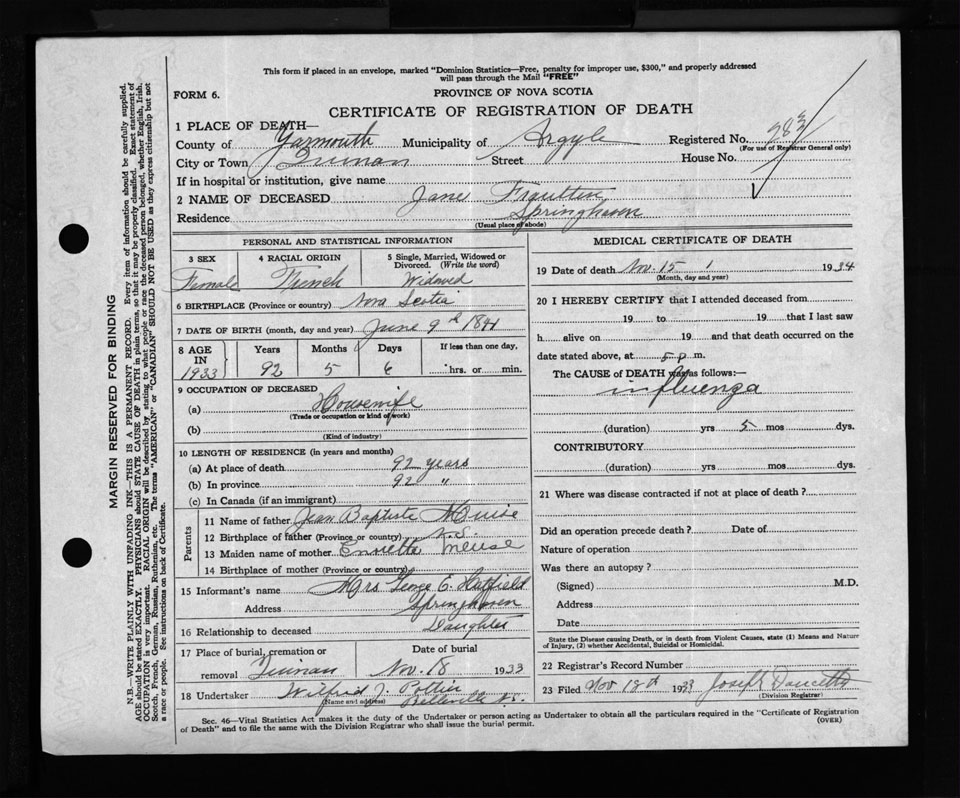 This form if placed in an envelope, marked "Dominion Statistics—Free, penalty for improper use, $300," and properly addressed
will pass through the Mail "FREE"
FORM 6.
PROVINCE OF NOVA SCOTIA
CERTIFICATE OF REGISTRATION OF DEATH
1 PLACE OF DEATH—
County of Yarmouth Municipality of Argyle Registered No.
(For use of Registrar General only)
City or Town Quinan Street House No.
If in hospital or institution, give name
2 NAME OF DECEASED Jane
Residence Springhaven
(Usual place of abode)
PERSONAL AND STATISTICAL INFORMATION
3 SEX 4 RACIAL ORIGIN 5 Single, Married, Widowed or
Divorced. (Write the word)
Female French Widowed
6 BIRTHPLACE (Province or country) Nova Scotia
7 DATE OF BIRTH (month, day and year) June 9th 1841
8 AGE IN 1933 Years 92 Months 5 Days 6 If less than one day,
hrs. or min.
9 OCCUPATION OF DECEASED
(a) Housewife
(Trade or occupation or kind of work)
(b)
(Kind of industry)
10 LENGTH OF RESIDENCE (in years and months)
(a) At place of death 92 years
(b) In province 92 "
(c) In Canada (if an immigrant)
Parents
11 Name of father Jean Baptiste Muise
12 Birthplace of father (Province or country) N.S.
13 Maiden name of mother Meuse
14 Birthplace of mother (Province or country)
15 Informant's name Mrs George E. Hatfield
Address Springhaven
16 Relationship to deceased Daughter
17 Place of burial, cremation or Date of burial
removal Quinan Nov. 18 1933
18 Undertaker Wilfred J. Pottier
(Name and address) Belleville N.S.
MEDICAL CERTIFICATE OF DEATH
19 Date of death Nov. 15 1934
(Month, day and year)
20 I HEREBY CERTIFY that I attended deceased from
19 to 19 that I last saw
h alive on 19 and that death occurred on the
date stated above, at 5 p m.
The CAUSE of DEATH was as follows:—
influenza
(duration) yrs 5 mos dys.
CONTRIBUTORY
(duration) yrs mos dys.
21 Where was disease contracted if not at place of death?
Did an operation precede death? Date of
Nature of operation
Was there an autopsy?
(Signed) M.D.
Address
Date
State the Disease causing Death, or in death from Violent Causes, state (1) Means and Nature
of Injury, (2) whether Accidental, Suicidal or Homicidal.
22 Registrar's Record Number
23 Filed Nov 18th 1933 Joseph Doucette
(Division Registrar)
Sec. 46—Vital Statistics Act makes it the duty of the Undertaker or person acting as Undertaker to obtain all the particulars required in the "Certificate of Registration
of Death" and to file the same with the Division Registrar who shall issue the burial permit.
(OVER)
MARGIN RESERVED FOR BINDING
N. B.—WRITE PLAINLY WITH UNFADING INK—THIS IS A PERMANENT RECORD. Every item of information should be carefully supplied.
AGE should be stated EXACTLY. PHYSICIANS should STATE CAUSE OF DEATH in plain terms, so that it may be properly classified. Exact statement of
OCCUPATION is very important. RACIAL ORIGIN will be described by stating to what people or race the deceased person belonged, whether English, Irish,
Scotch, French, German, Russian, Ruthenian, etc. The terms "AMERICAN" or "CANADIAN" SHOULD NOT BE USED as they express citizenship but not
a race or people. See instructions on back of Certificate.